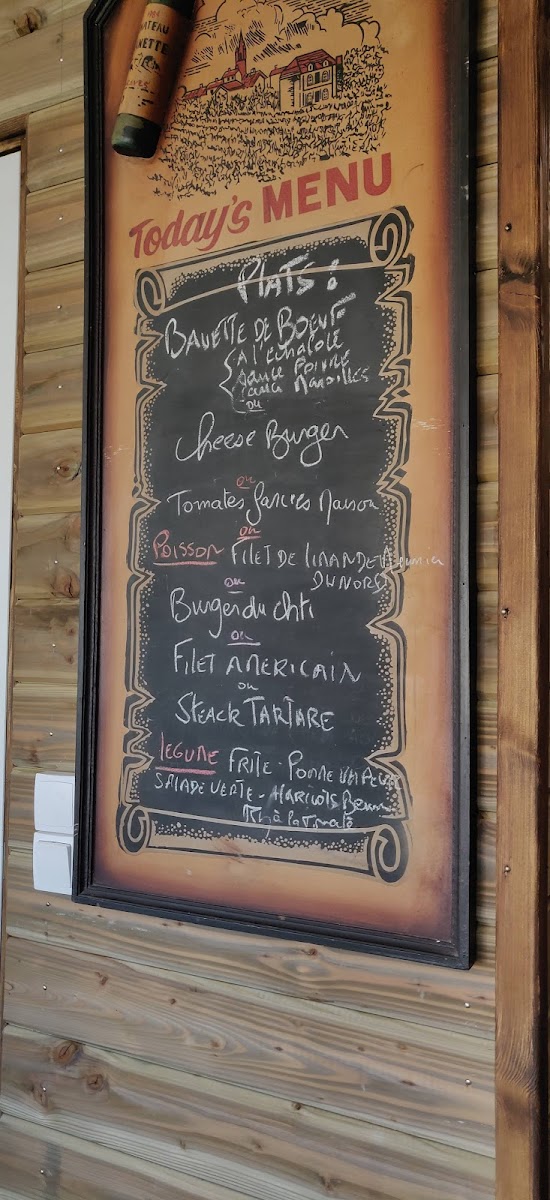 CHATEAU
Today's MENU
PLATS :
BAVETTE DE BOEUF
A l'échalote
sauce POIVRE
sauce Maroilles
ou
Cheese Burger
ou
Tomates farcies Maison
ou
POISSON FILET DE LIMANDE Meunier
DU NORD
ou
Burger du chti
ou
FILET AMERICAIN
ou
STEACK TARTARE
LEGUME FRITE - POMME VAPEUR
SALADE VERTE - HARICOTS Beurre
Riz à la Tomate